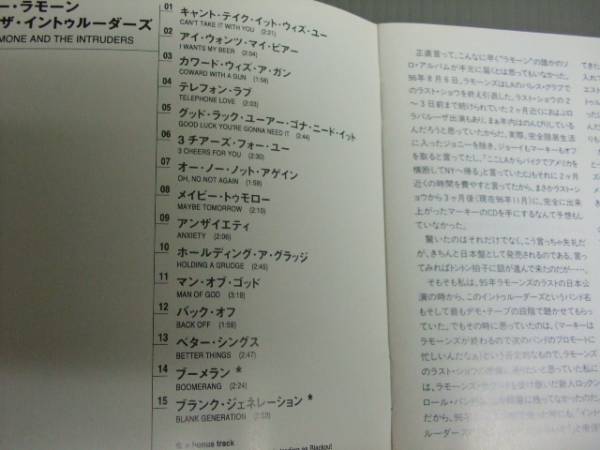 ー・ラモーン
ザ・イントゥルーダーズ
MONE AND THE INTRUDERS
01 キャント・テイク・イット・ウィズ・ユー
CAN'T TAKE IT WITH YOU (2:21)
02 アイ・ウォンツ・マイ・ビアー
I WANTS MY BEER (2:04)
03 カワード・ウィズ・ア・ガン
COWARD WITH A GUN (1:58)
04 テレフォン・ラブ
TELEPHONE LOVE (2:03)
05 グッド・ラック・ユーアー・ゴナ・ニード・イット
GOOD LUCK YOU'RE GONNA NEED IT (2:44)
06 3 チアーズ・フォー・ユー
3 CHEERS FOR YOU (2:30)
07 オー・ノー・ノット・アゲイン
OH, NO NOT AGAIN (1:59)
08 メイビー・トゥモロー
MAYBE TOMORROW (2:10)
09 アンザイエティ
ANXIETY (2:06)
10 ホールディング・ア・グラッジ
HOLDING A GRUDGE (2:45)
11 マン・オブ・ゴッド
MAN OF GOD (3:18)
12 バック・オフ
BACK OFF (1:58)
13 ベター・シングス
BETTER THINGS (2:47)
14 ブーメラン *
BOOMERANG (2:24)
15 ブランク・ジェネレーション *
BLANK GENERATION
= bonus track
正直言って、こんなに早く“ラモーン”の誰かのソ
ロ・アルバムが手元に届くとは思ってもいなかった。
96年8月6日、ラモーンズはLAのパレス・グラフで
のラスト・ショウを終え引退した。ラスト・ショウの2
〜3日前まで続けられていた2ヶ月近くにおよぶロ
ラパルーザ出演もあり、まぁ年内はのんびりしている
んだろうと思っていたからだ。実際、完全隠居生活
に入ったジョニーを除き、ジョーイもマーキーもオフ
を取ると言ってたし、「ここLAからバイクでアメリカを
横断してNYへ帰る」と言っていたCJもそれに2ヶ月
近くの時間を費やすと言ってたから、まさかラスト・シ
ョウから3ヶ月後(現在96年11月)に、完全に出来
上がったマーキーのCDを手にするなんて予想もし
ていなかった。
驚いたのはそれだけでなく、こう言っちゃ失礼だ
が、きちんと日本盤として発売されるのである。言っ
てみればトントン拍子に話が進んで来たのだが……。
そもそも私は、95年ラモーンズのラストの日本公
演の時から、このイントゥルーダーズというバンド名
もそして最もデモ・テープの段階で聴かせてもらっ
ていた。でもその時に思っていたのは、(マーキーは
ラモーンズが終わるので次のバンドのプロモートに
忙しいんだなぁ)という
のラスト・ショウ
は、ラモーンズ
ロール・バンド
だから、96年
ルーダーズ
てきた
入れて
エスト
トゥル